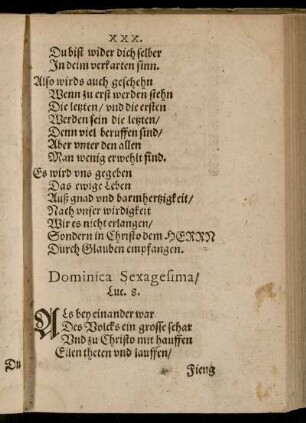 XXX.
Du bist wider dich selber
In deim verkarten sinn.
Also wirds auch geschehn
Wenn zu erst werden stehn
Die letzten/ vnd die ersten
Werden sein die letzten/
Denn viel beruffen sind/
Aber vnter den allen
Man wenig erwehlt find.
Es wird vns gegeben
Das ewige Leben
Auß gnad vnd barmhertzigkeit/
Nach vnser wirdigkeit
Wir es nicht erlangen/
Sondern in Christo dem HERRN
Durch Glauben empfangen.
Dominica Sexagesima/
Luc. 8.
ALs bey einander war
Des Volcks ein grosse schar
Vnd zu Christo mit hauffen
Eilen theten vnd lauffen/
Fieng